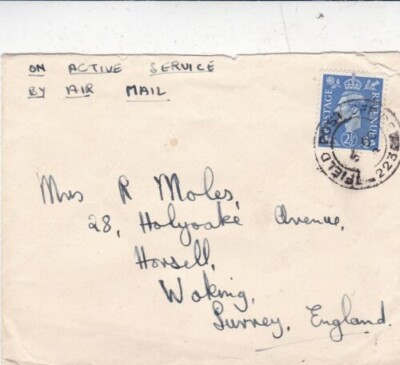 ON ACTIVE SERVICE
BY AIR MAIL
POSTAGE REVENUE
2½
FIELD POST
223
Mrs R Moles,
28, Holyoake Avenue,
Horsell,
Woking,
Surrey, England.